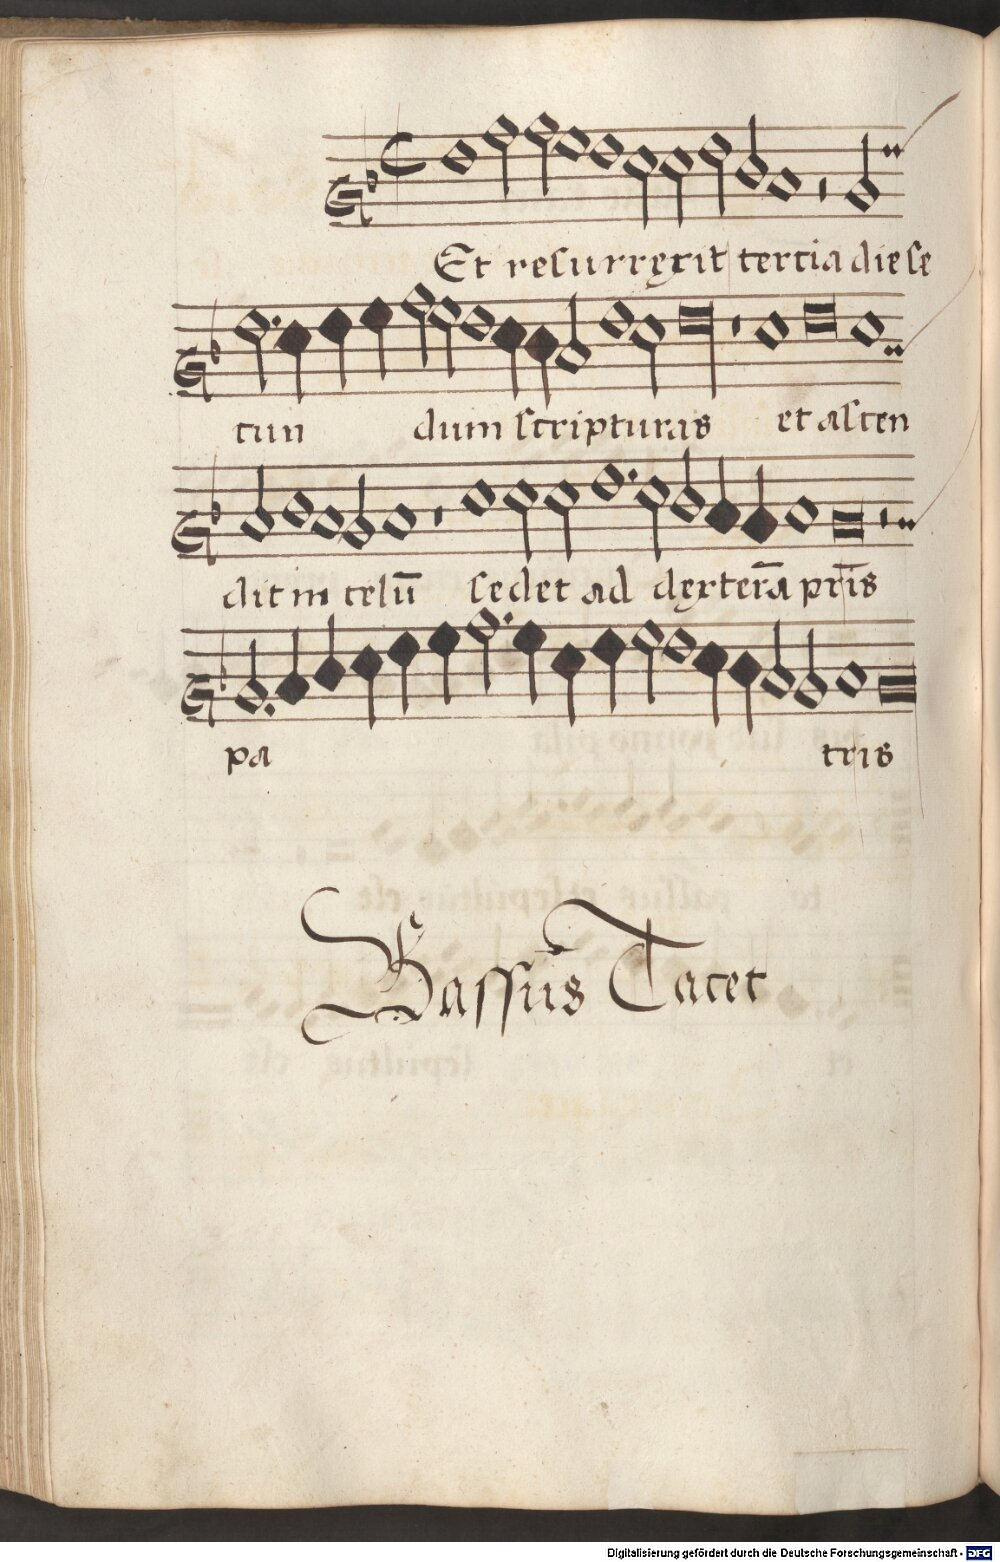 Et resurrexit tertia die se
cun dum scripturas et ascen
dit in celū sedet ad dexterā pr̄is
pa tris
Bassus Tacet
Digitalisierung gefördert durch die Deutsche Forschungsgemeinschaft - DFG